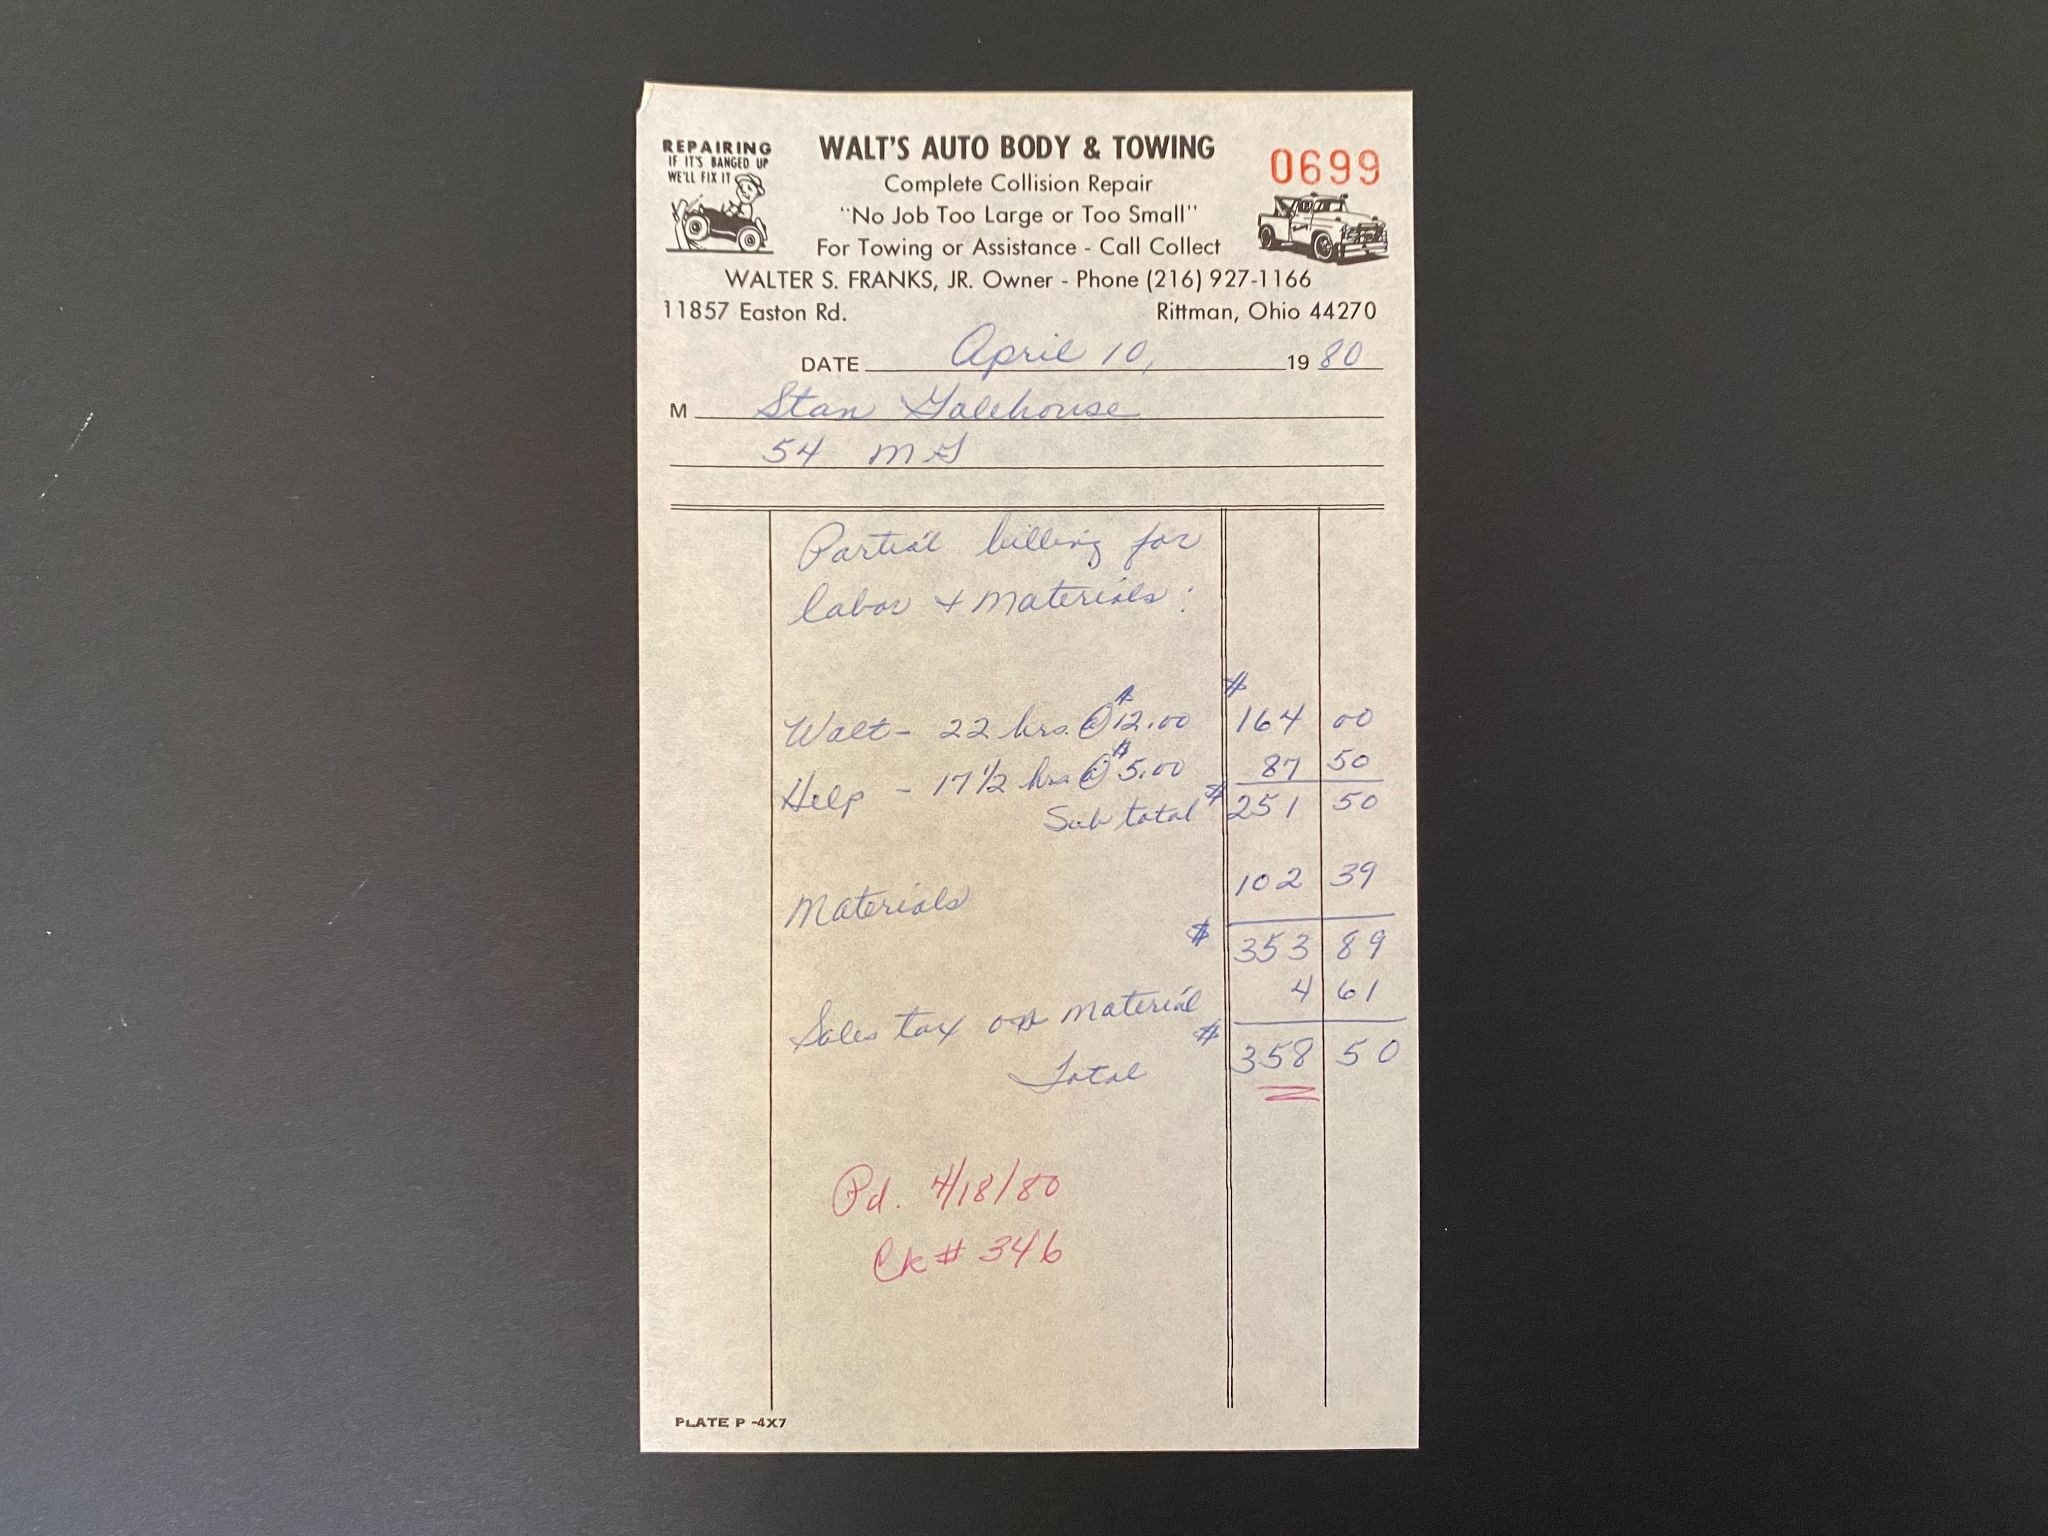 REPAIRING
IF IT'S BANGED UP
WE'LL FIX IT
WALT'S AUTO BODY & TOWING
0699
Complete Collision Repair
"No Job Too Large or Too Small"
For Towing or Assistance - Call Collect
WALTER S. FRANKS, JR. Owner - Phone (216) 927-1166
11857 Easton Rd. Rittman, Ohio 44270
DATE April 10, 19 80
M Stan Galehouse
54 MG
Partial billing for
labor & materials:
Walt - 22 hrs. @ $12.00 $164 00
Help - 17 1/2 hrs @ $5.00 87 50
Sub total $251 50
Materials 102 39
$353 89
Sales tax on material 4 61
Total $358 50
Pd. 4/18/80
Ck # 346
PLATE P -4X7